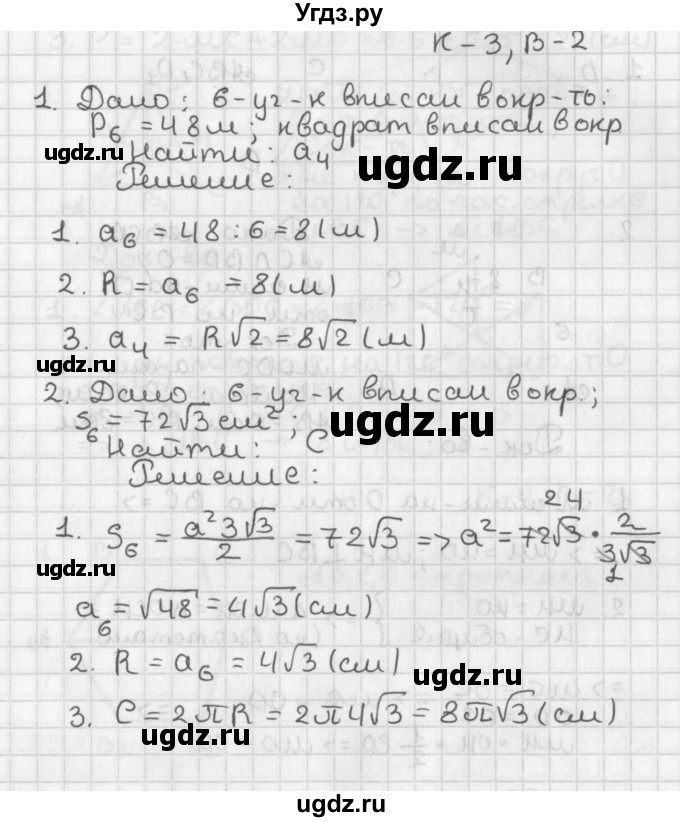 Угдз.ру
К-3, В-2
1. Дано: 6-уг-к вписан в окр-ть:
P₆ = 48 м; квадрат вписан в окр
ugdz.ru Найти: a₄ ugdz.ru
Решение:
1. a₆ = 48 : 6 = 8 (м)
2. R = a₆ = 8 (м)
3. a₄ = R√2 = 8√2 (м)
ugdz.ru
2. Дано: 6-уг-к вписан в окр.;
S₆ = 72√3 см²; ugdz.ru
Найти: C
Решение:
1. S₆ = a²3√3/2 = 72√3 => a² = 72√3 · 2/3√3
24
1
ugdz.ru
a₆ = √48 = 4√3 (см)
2. R = a₆ = 4√3 (см) ugdz.ru
3. C = 2πR = 2π4√3 = 8π√3 (см)
ugdz.ru
ugdz.ru